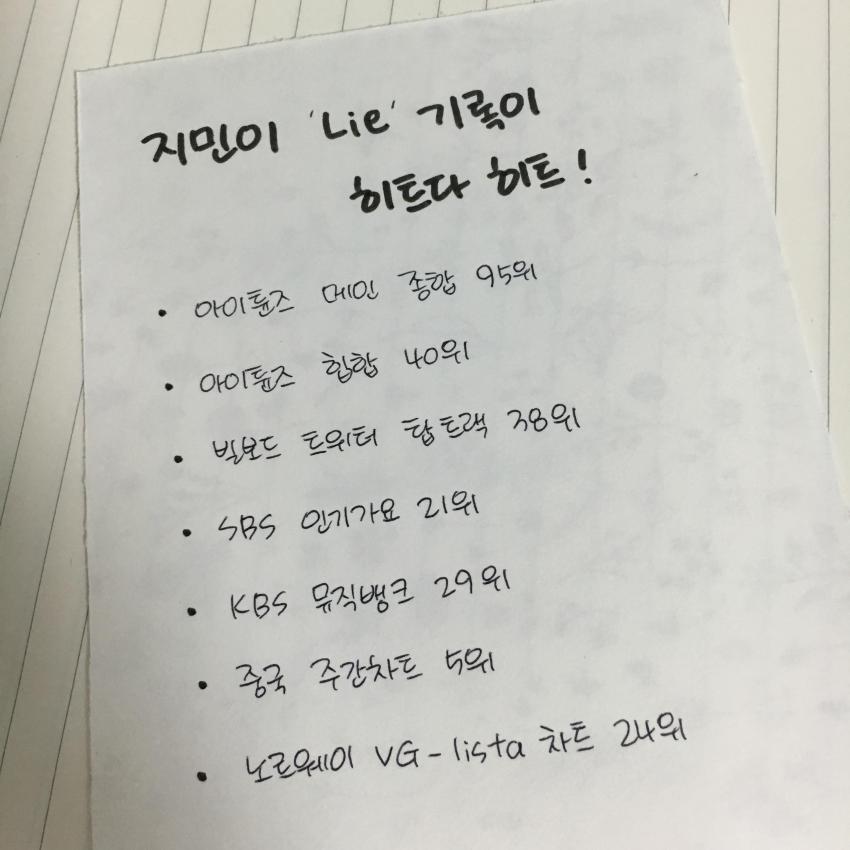 지민이 'Lie' 기록이
히트다 히트!
• 아이튠즈 메인 종합 95위
• 아이튠즈 힙합 40위
• 빌보드 트위터 탑트랙 38위
• SBS 인기가요 21위
• KBS 뮤직뱅크 29위
• 중국 주간차트 5위
• 노르웨이 VG-lista 차트 24위